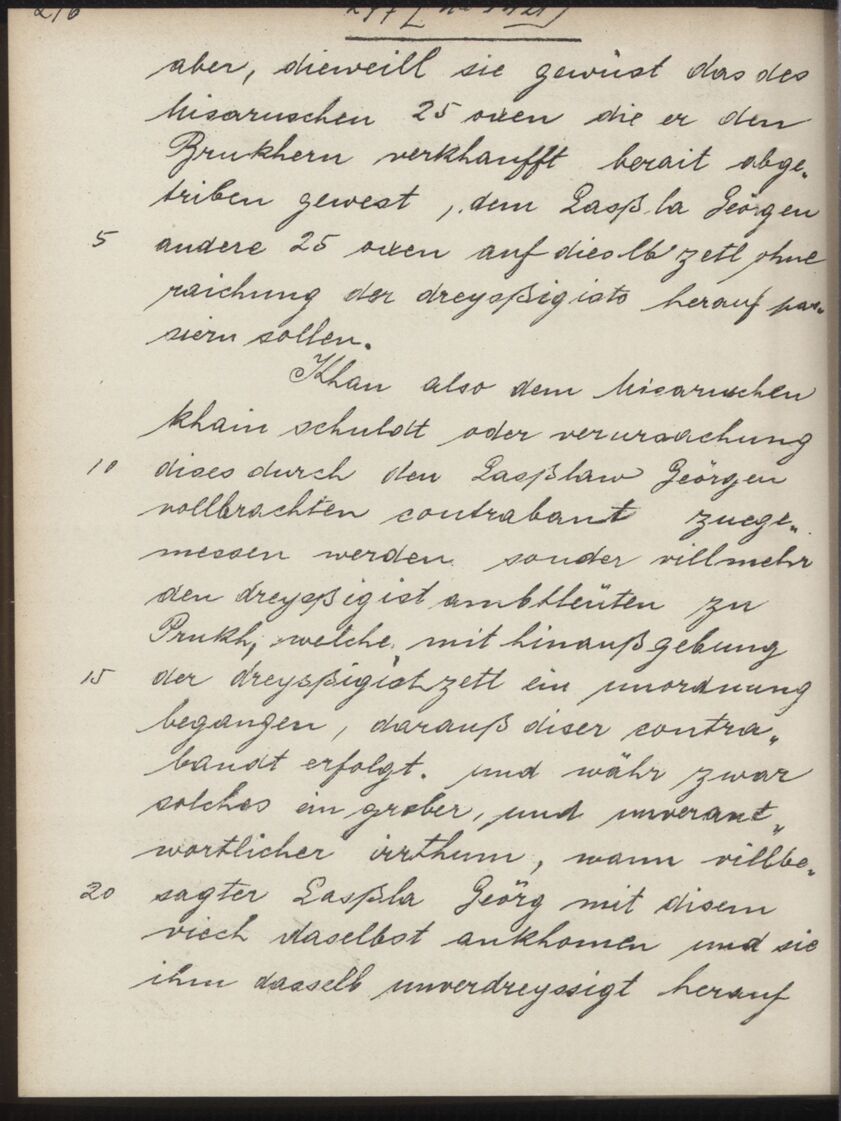 216
aber, dieweill sie gewüst das des
Misaruschen 25 oxen die er den
Brukhern verkhaufft berait abge„
triben gewest, dem Laßla Geörgen
5 andere 25 oxen auf dieslb zetl ohne
raichung der dreyßigists herauf pas„
siern sollen.
Khan also dem Misaruschen
khain schuldt oder verursachung
10 dises durch den Laßlaw Geörgen
vollbrachten contrabant zuege„
messen werden sonder villmehr
den dreyßigist ambtleüten zu
Prukh, welche, mit hinaußgebung
15 der dreysßigistzetl ein unordnung
begangen, darauß diser contra„
bandt erfolgt. und währ zwar
solches ein grober, und unverant„
wortlicher irrthum, wann villbe„
20 sagter Laßla Geörg mit disem
viech daselbst ankhomen und sie
ihm dasselb unverdreyssigt herauf